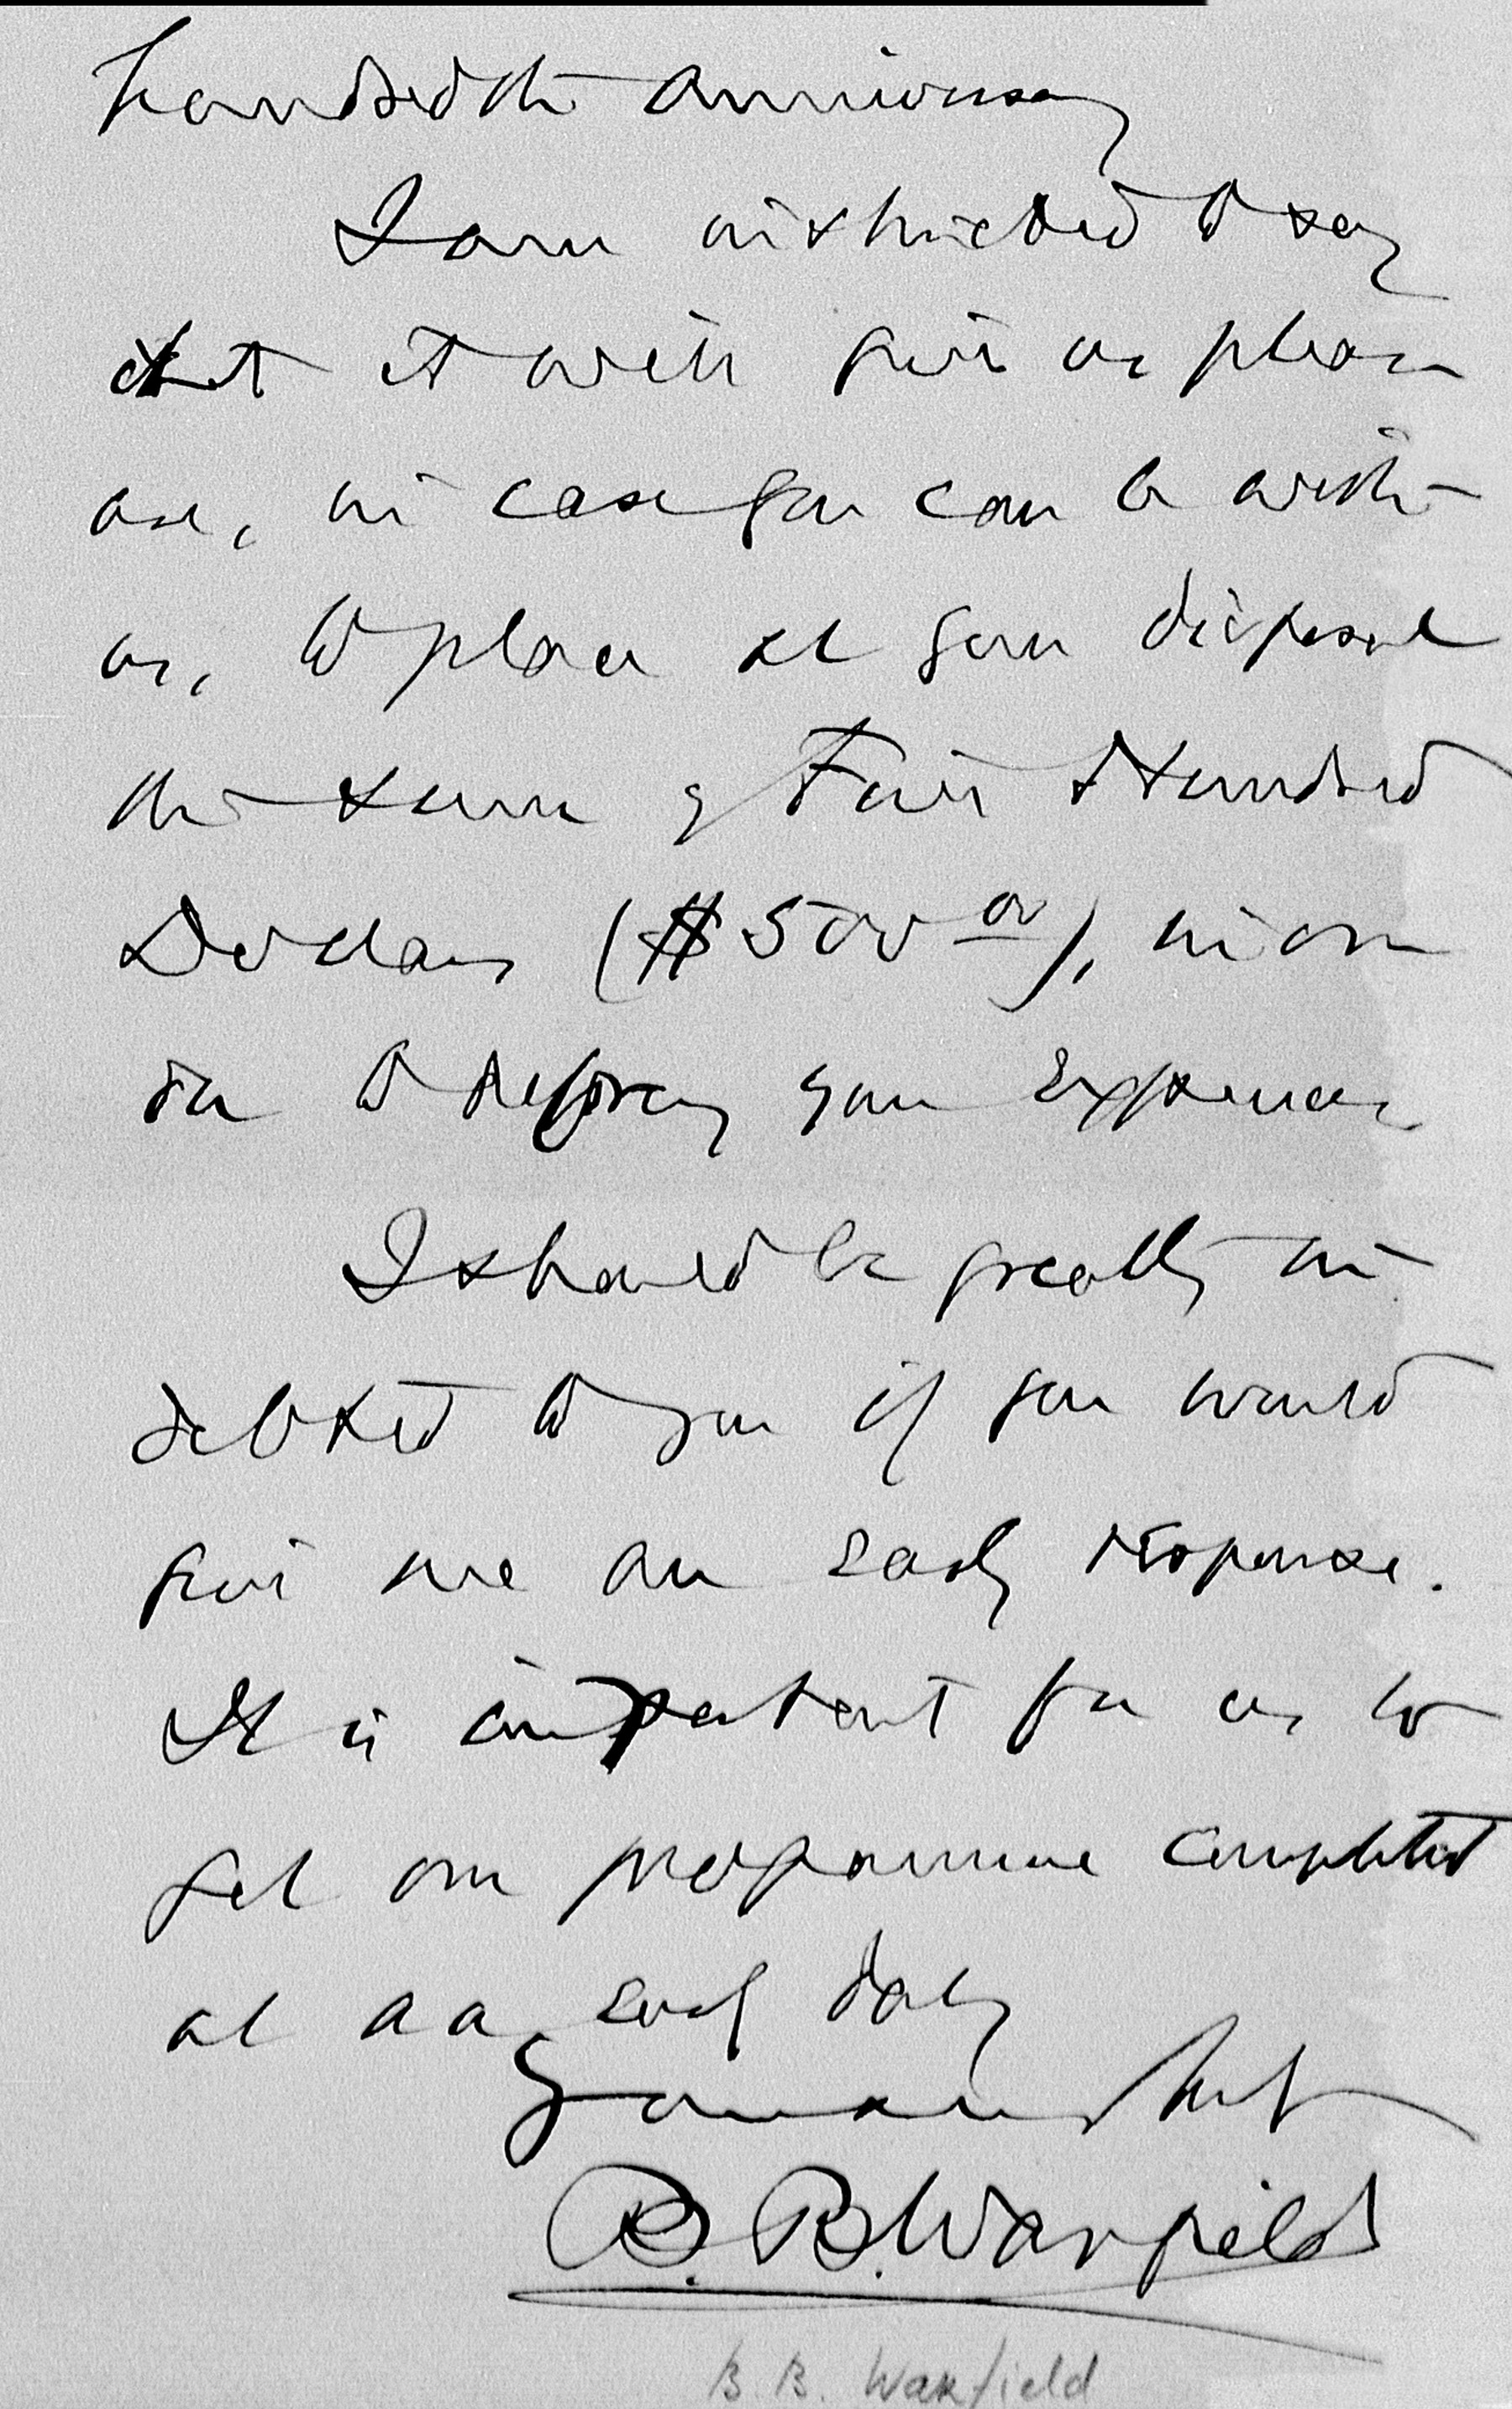 hundredth anniversary
I am instructed to say
that it will give us pleas-
ure, in case you can be with
us, to place at your disposal
the sum of Five Hundred
Dollars ($500 00), in or-
der to defray your expenses
I should be greatly in-
debted to you if you would
give me an early response.
It is important for us to
get our programme completed
at an early day
Yours truly
B. B. Warfield
B. B. Warfield